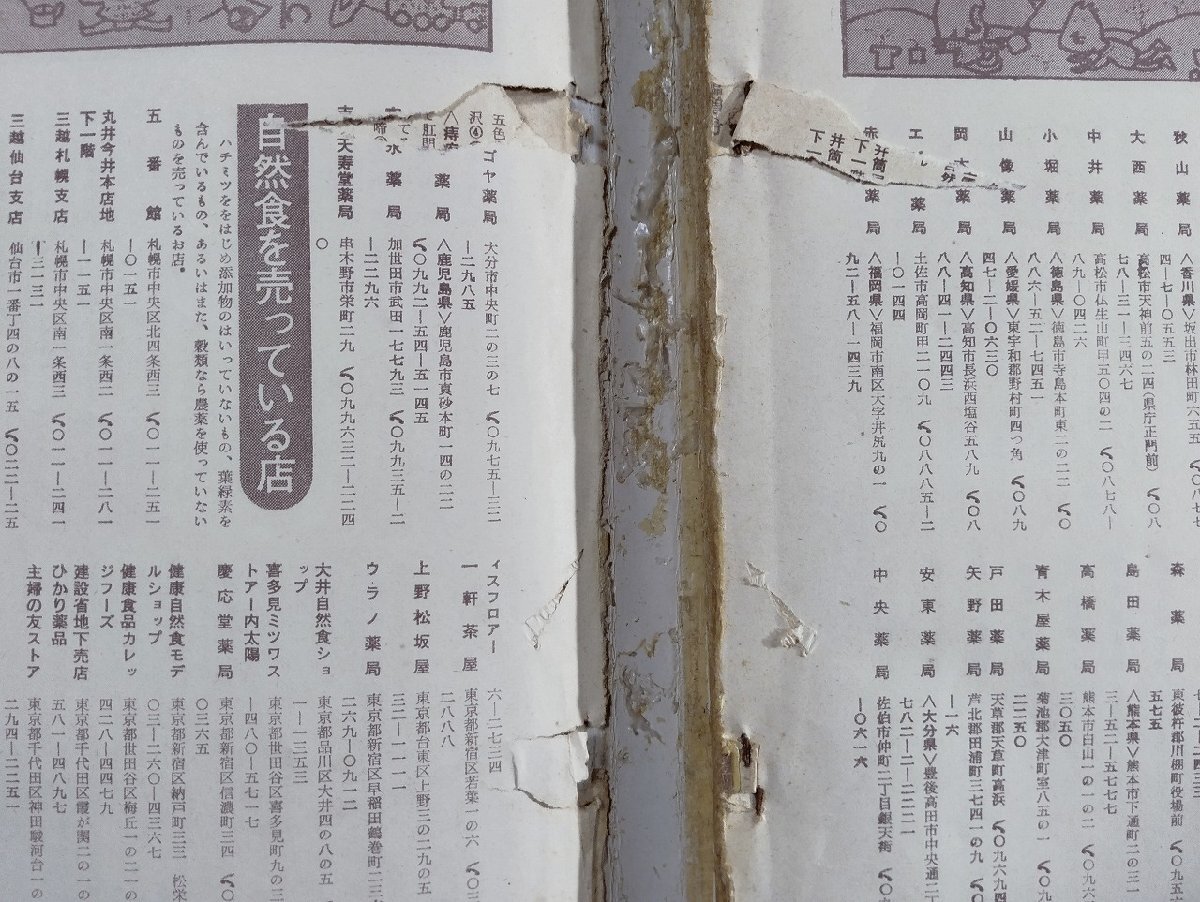 秋山薬局
〈香川県〉坂出市林田町六五五
四一七―〇五五三
大西薬局
高松市天神前五の二四（県庁正門前）
七八―三一―三四六七
中井薬局
高松市仏生山町甲五〇四の二 〇八七八―
八九―〇四二六
小堀薬局
〈徳島県〉徳島市寺島本町東二の二二
八八六―五二―七四五一
山像薬局
〈愛媛県〉東宇和郡野村町四つ角 〇八九
四七―二―〇六三〇
〈高知県〉高知市長浜西塩谷五八九 〇八
八八―四一―二四四三
土佐市高岡町田二一〇九 〇八八八五―二
―〇一四四
薬局
〈福岡県〉福岡市南区大字井尻九の一
九二―五八―一四三九
森薬局
東彼杵郡川棚町役場前
五七五
島田薬局
〈熊本県〉熊本市下通町二の三一
三―五二―五七七七
高橋薬局
熊本市白山一の一の二
三〇五〇
青木屋薬局
菊池郡大津町室八五の一
二二五〇
戸田薬局
天草郡天草町高浜 〇九六九四
―一六
矢野薬局
芦北郡田浦町三七四一の九
安東薬局
〈大分県〉豊後高田市中央通二丁
七八二―二―二二二一
中央薬局
佐伯市仲町二丁目銀天街
―〇六一六
ゴヤ薬局
大分市中央町二の三の七 〇九七五―三二
―二九八五
薬局
〈鹿児島県〉鹿児島市真砂本町一四の二二
〇九九二―五四―五一四五
水薬局
加世田市武田一七七九三 〇九九三五―二
―二二九六
天寿堂薬局
串木野市栄町二九 〇九九六三二―二二四
〇
自然食を売っている店
ハチミツををはじめ添加物のはいっていないもの、葉緑素を
含んでいるもの、あるいはまた、穀類なら農薬を使っていない
ものを売っているお店。
五番館
札幌市中央区北四条西三 〇一一―二五一
―〇一五一
丸井今井本店地
下一階
札幌市中央区南一条西二 〇一一―二八一
―一一五一
三越札幌支店
札幌市中央区南一条西三 〇一一―二四一
―二一三一
三越仙台支店
仙台市一番丁四の八の一五 〇二二―二五
ィスフロアー
六―二七三四
一軒茶屋
東京都新宿区若葉一の六 〇三
二八八八
上野松坂屋
東京都台東区上野三の二九の五
三二―一一一一
ウラノ薬局
東京都新宿区早稲田鶴巻町二三
二六九―〇九一二
大井自然食ショ
ップ
東京都品川区大井四の八の五
一―一三五三
喜多見ミツワス
トアー内太陽
東京都世田谷区喜多見町九の二
―四八〇―五七一七
慶応堂薬局
東京都新宿区信濃町三四
〇三六五
健康自然食モデ
ルショップ
東京都新宿区納戸町三三 松栄
〇三―二六〇―四三六七
健康食品カレッ
ジフーズ
東京都世田谷区梅丘一の二一の
四二八―四四七九
建設省地下売店
東京都千代田区霞が関二の一の
ひかり薬品
五八一―四八九七
主婦の友ストア
東京都千代田区神田駿河台一の
二九四―二二五一